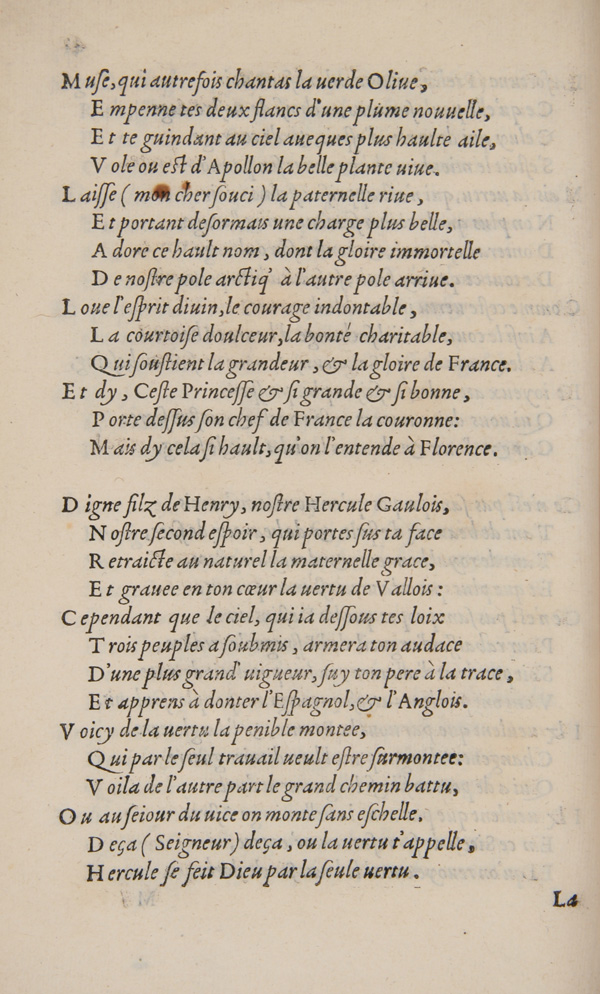 Muſe, qui autrefois chantas la uerde Oliue,
Empenne tes deux flancs d'une plume nouuelle,
Et te guindant au ciel aueques plus haulte aile,
Vole ou eſt d'Apollon la belle plante uiue.
Laiſſe (mon cher ſouci) la paternelle riue,
Et portant deſormais une charge plus belle,
Adore ce hault nom, dont la gloire immortelle
De noſtre pole arctiq' à l'autre pole arriue.
Loue l'eſprit diuin, le courage indontable,
La courtoiſe doulceur, la bonté charitable,
Qui ſouſtient la grandeur, & la gloire de France.
Et dy, Ceſte Princeſſe & ſi grande & ſi bonne,
Porte deſſus ſon chef de France la couronne:
Mais dy cela ſi hault, qu'on l'entende à Florence.
Digne filz de Henry, noſtre Hercule Gaulois,
Noſtre ſecond eſpoir, qui portes ſus ta face
Retraicte au naturel la maternelle grace,
Et grauee en ton cœur la uertu de Vallois:
Cependant que le ciel, qui ia deſſous tes loix
Trois peuples a ſoubmis, armera ton audace
D'une plus grand' uigueur, ſuy ton pere à la trace,
Et apprens à donter l'Eſpagnol, & l'Anglois.
Voicy de la uertu la penible montee,
Qui par le ſeul trauail ueult eſtre ſurmontee:
Voila de l'autre part le grand chemin battu,
Ou au ſeiour du uice on monte ſans eſchelle.
Deça (Seigneur) deça, ou la uertu t'appelle,
Hercule ſe feit Dieu par la ſeule uertu.
La